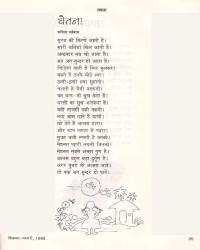 चेतना
सूरज की किरणें आती हैं।
सारी कलियां खिल जाती हैं।
अन्धकार सब खो जाता है।
सब जग सुन्दर हो जाता है।
चिड़ियां गाती हैं मिल जुलकर।
उनके मीठे स्वर।
ठण्डी-ठण्डी हवा सुहानी।
चलती है जैसे मस्तानी।
यह प्रातः की सुख बेला है।
धरती का सुख अलबेला है।
नई ताजगी नई कहानी।
नया जोश पाते हैं प्राणी।
खो देते हैं आलस सारा।
और काम लगता है प्यारा।
सुबह भली लगती है उनको।
मेहनत प्यारी लगती जिनको।
मेहनत सबसे अच्छा गुण है।
आलस बहुत बड़ा दुर्गुण है।
अगर सुबह भी अलसा जाये।
तो क्या जग सुन्दर हो पाये।